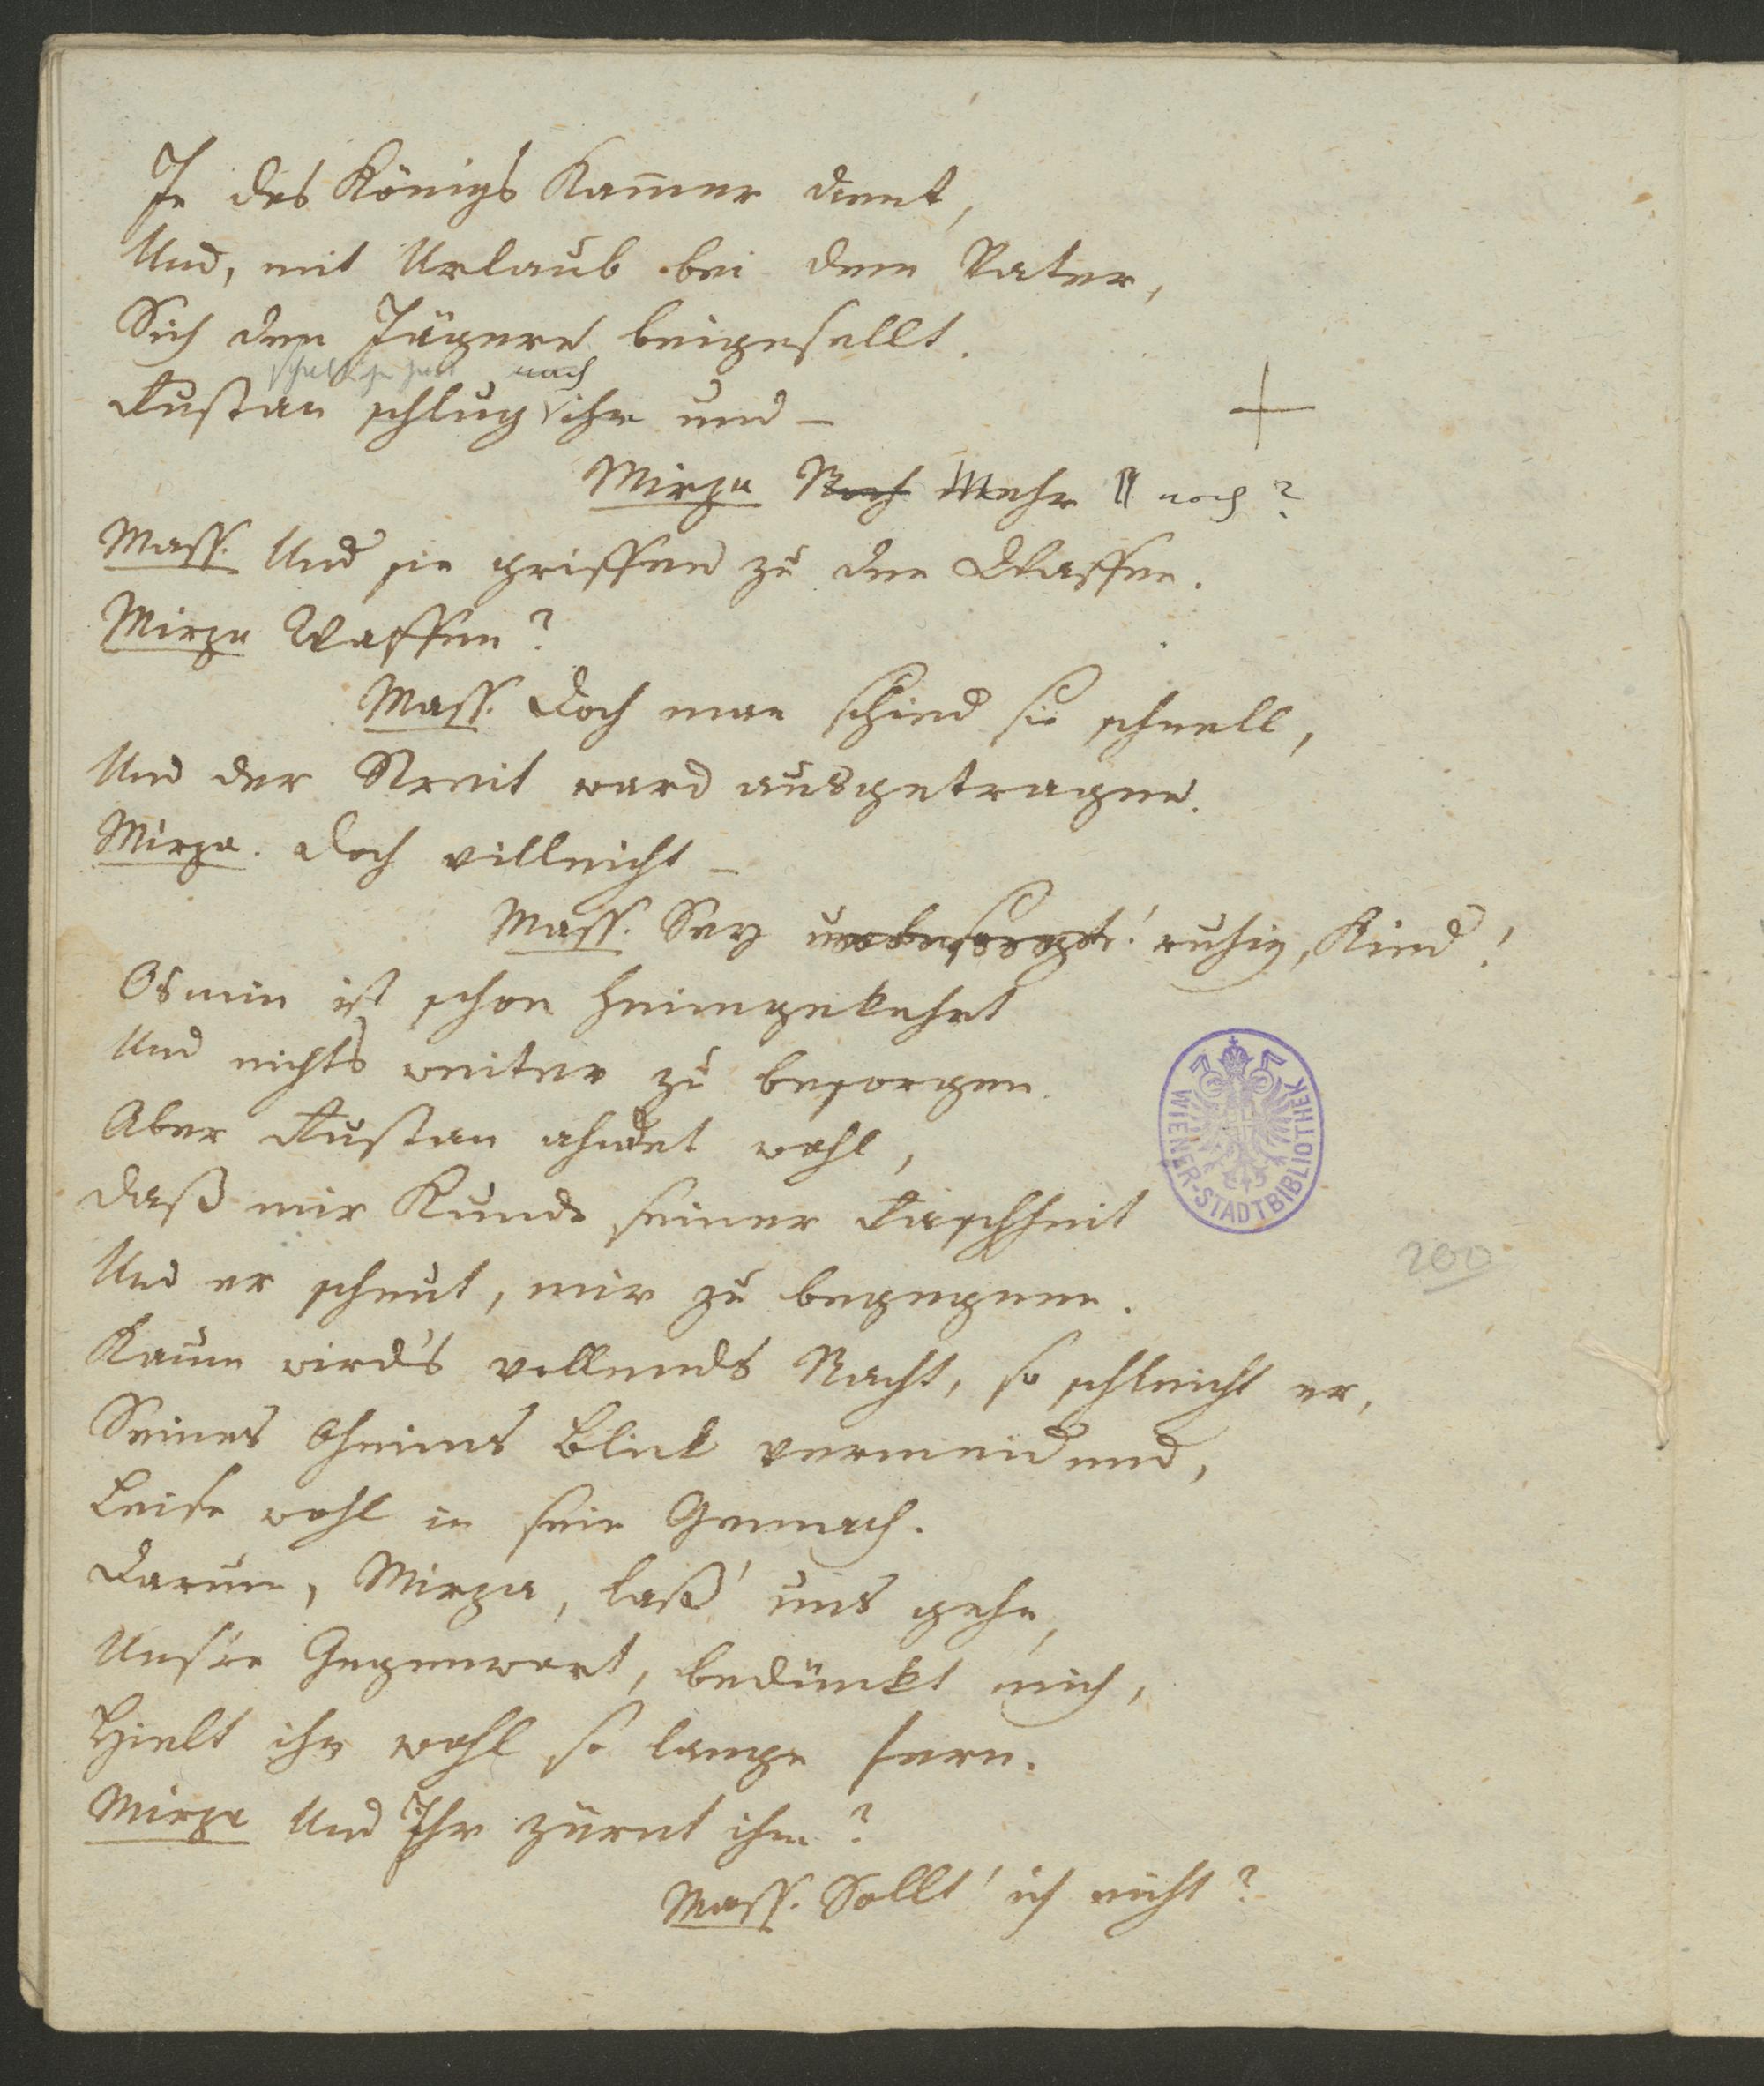 In des Königs Kam̅er dient,
Und, mit Urlaub bei dem Vater,
Sich den Jägern beigesellt.
nach
Rustan schlug ihn und –
Mirza Noch Mehr noch?
Mass. Und sie griffen zu den Waffen.
Mirza Waffen?
Mass. Doch man schied sie schnell,
Und der Streit ward ausgetragen.
Mirza. Doch villeicht –
Mass. Sey unbesorgt! ruhig, Kind!
Osmin ist schon heimgekehrt
Und nichts weiter zu besorgen.
Aber Rustan ahndet wohl,
Daß mir Kunde seiner Raschheit
Und er scheut, mir zu begegnen.
Kaum wird's vollends Nacht, so schleicht er,
Seines Oheims Blick vermeidend,
Leise wohl in sein Gemach.
Darum, Mirza, laß uns gehn,
Uns're Gegenwart, bedünkt mich,
Hielt ihn wohl so lange fern.
Mirza Und Ihr zürnt ihm?
Mass. Sollt' ich nicht?
WIENER-STADTBIBLIOTHEK
200